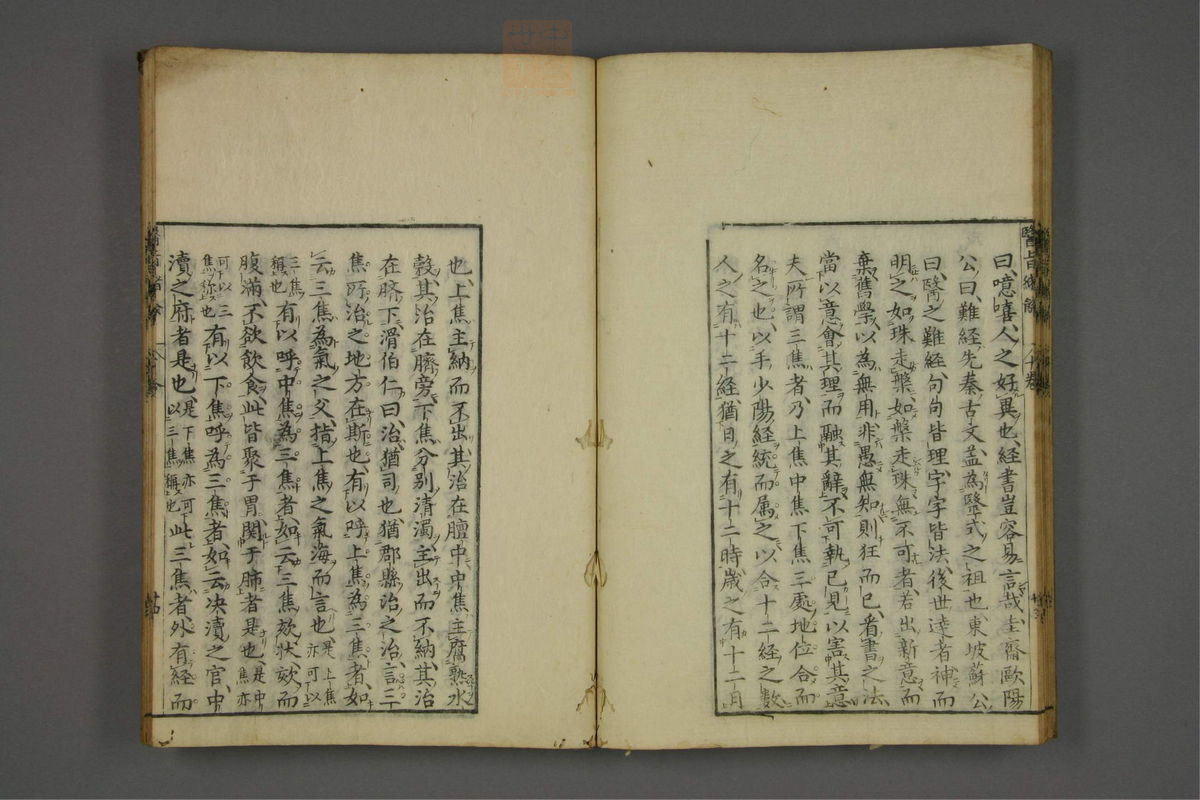 曰噫嘻人之好異也經書豈容易言哉圭齋歐陽
公曰難経先秦古文盖為醫式之祖也東坡蘇公
曰醫之難経句句皆理字字皆法後世達者神而
明之如珠走槃如槃走珠無不可者若出新意而
棄舊學以為無用非愚無知則狂而已看書之法
當以意會其理而融其辭不可執已見以害其意
夫所謂三焦者乃上焦中焦下焦三處地位合而
名之也以手少陽経統而属之以合十二経之數
人之有十二経猶日之有十二時歲之有十二月
也上焦主納而不出其治在膻中中焦主腐熟水
穀其治在臍旁下焦分別清濁主出而不納其治
在臍下滑伯仁曰治猶司也猶郡縣治之治言三
焦所治之地方在斯也有以呼上焦為三焦者如
云三焦為氣之父指上焦之氣海而言也是上焦亦可以
三焦稱也有以呼中焦為三焦者如云三焦欬状欬而
腹滿不欲飲食此皆聚于胃関于肺者是也是中焦亦
可下以三焦稱也有以下焦呼為三焦者如云决瀆之官中
瀆之府者是也是下焦亦可以三焦稱也此三焦者外有経而